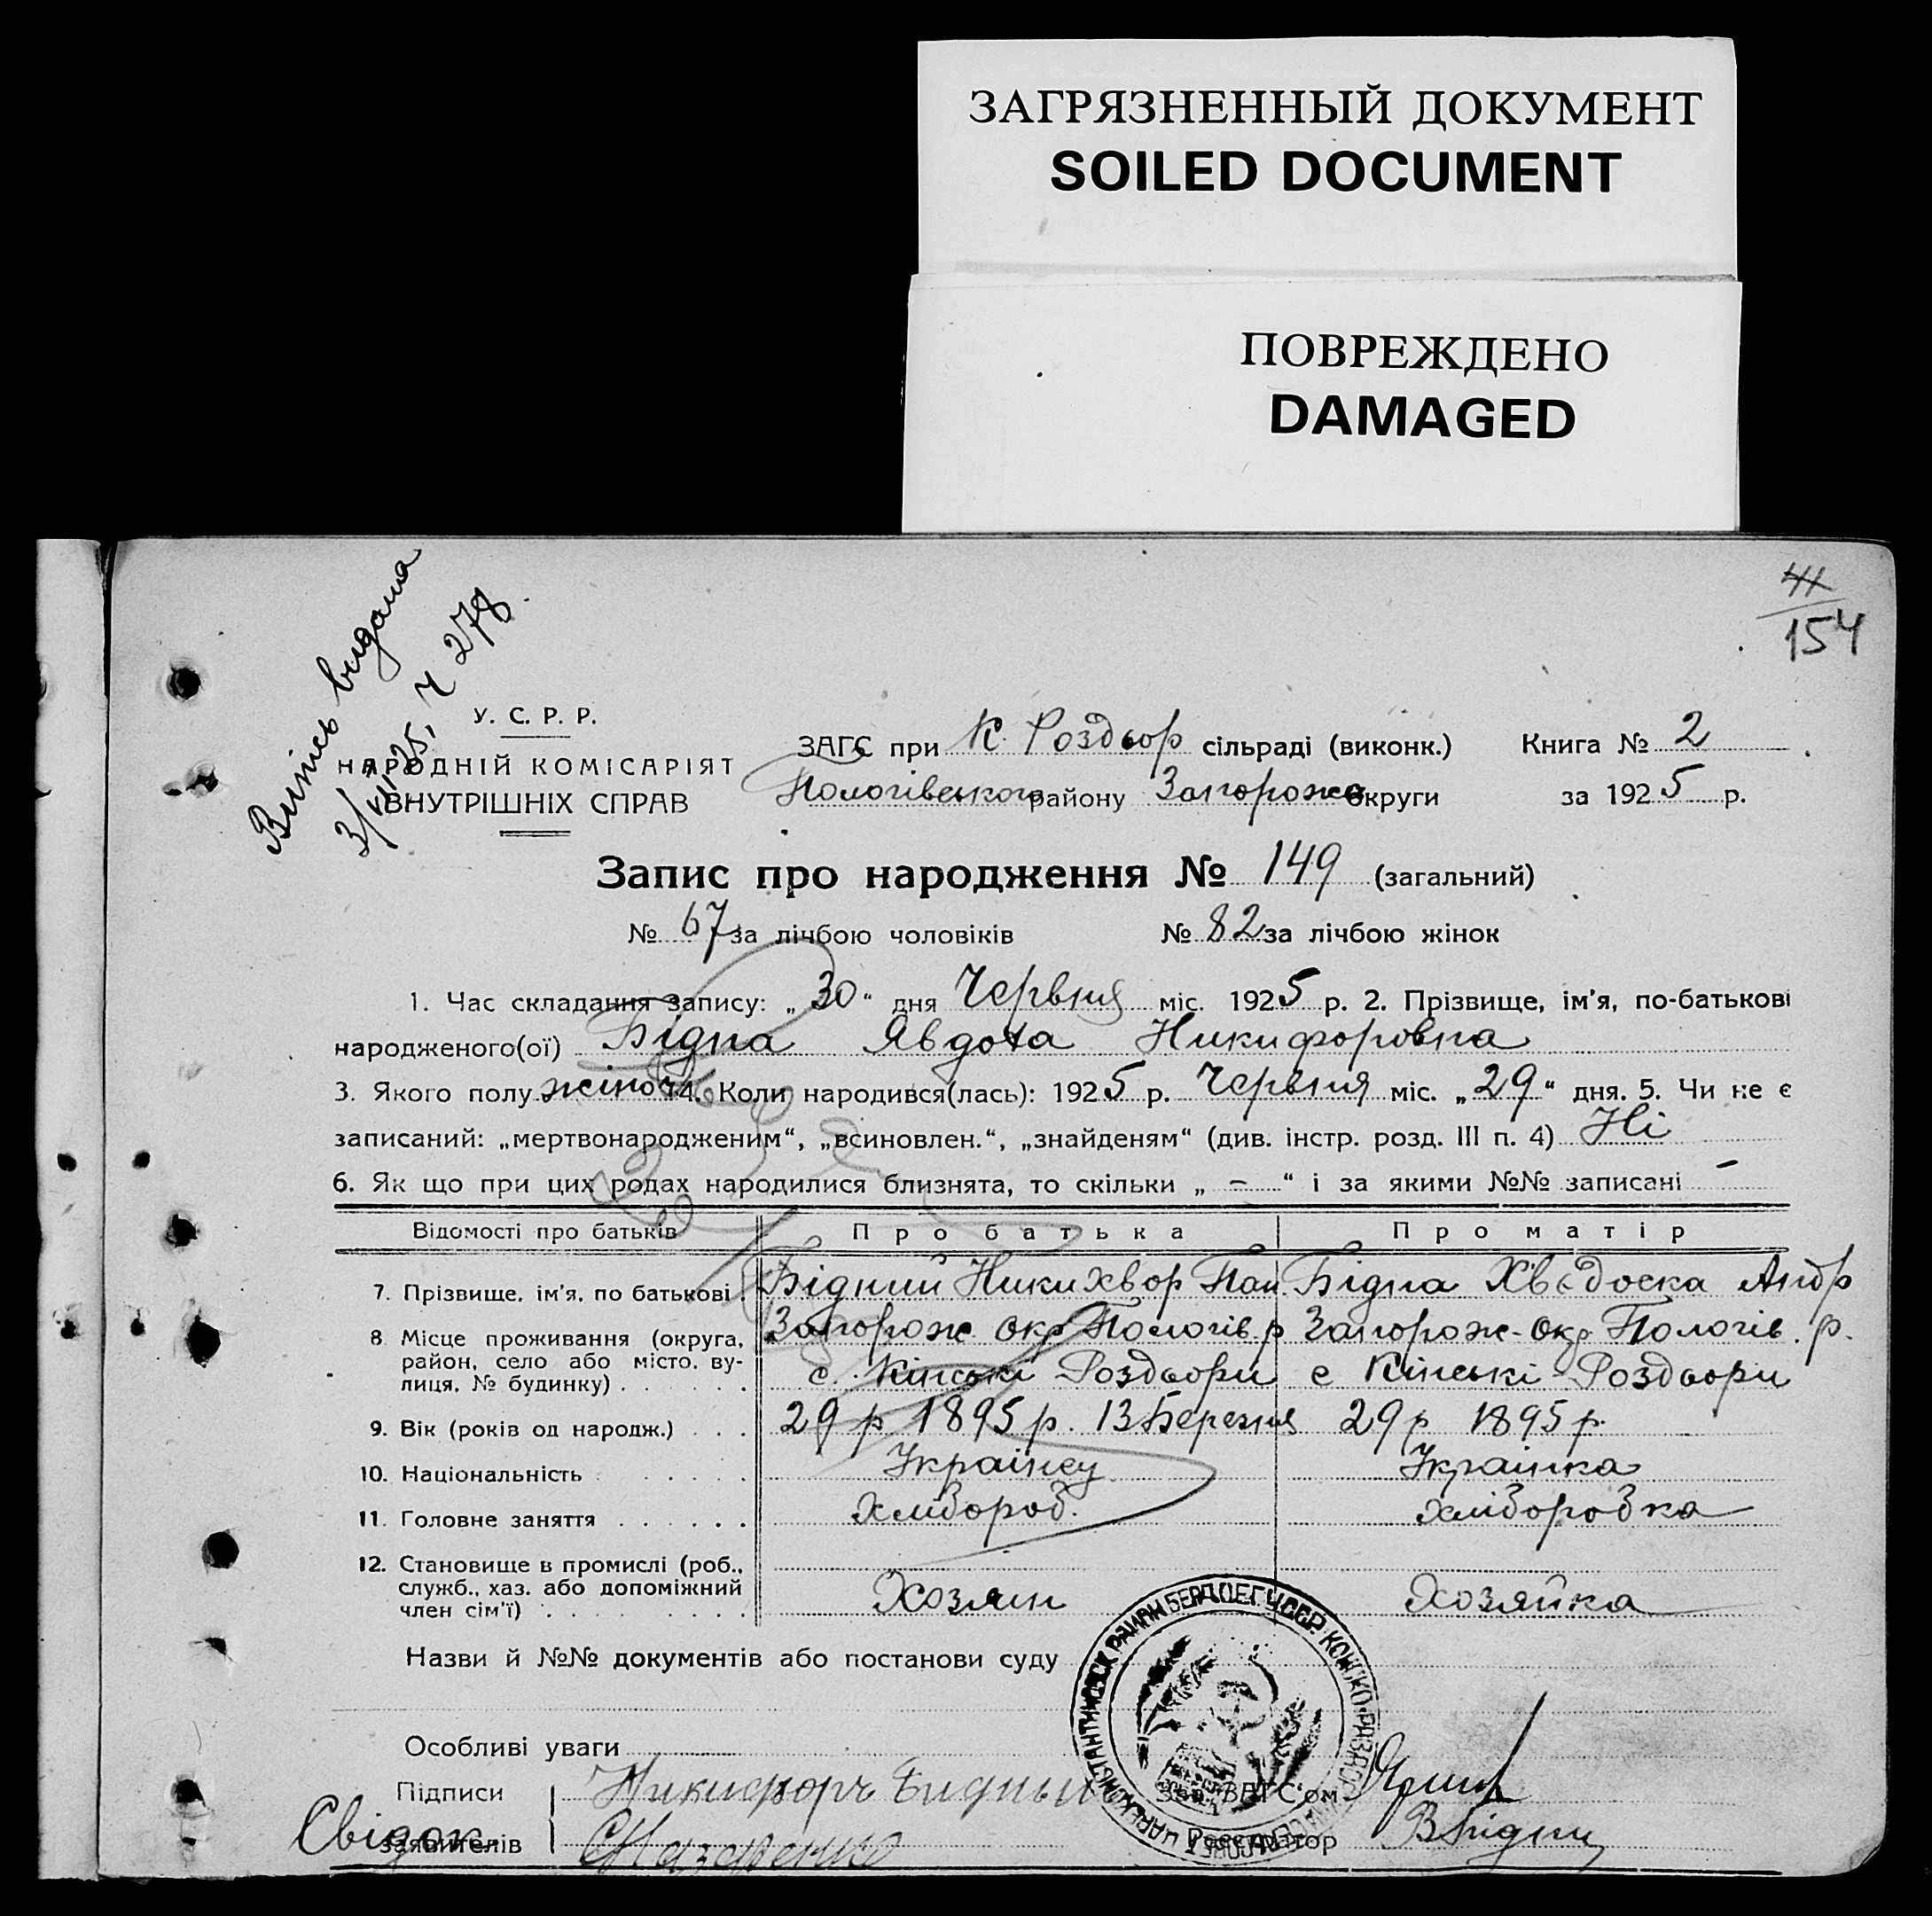 ЗАГРЯЗНЕННЫЙ ДОКУМЕНТ
SOILED DOCUMENT
ПОВРЕЖДЕНО
DAMAGED
44
154
Випись видана
3/VII 25, ч 278.
У. С. Р. Р.
НАРОДНІЙ КОМІСАРІЯТ
ВНУТРІШНІХ СПРАВ
ЗАГС при К. Роздор сільраді (виконк.) Книга № 2
Пологівського району Запорожс округи за 1925 р.
Запис про народження № 149 (загальний)
№ 67 за лічбою чоловіків № 82 за лічбою жінок
1. Час складання запису: „30“ дня Червня міс. 1925 р. 2. Прізвище, ім’я, по-батькові
народженого(ої) Бідна Явдота Никифоровна
3. Якого полу жіноч 4. Коли народився(лась): 1925 р. Червня міс. „29“ дня. 5. Чи не є
записаний: „мертвонародженим“, „всиновлен.“, „знайденям“ (див. інстр. розд. III п. 4) Ні
6. Як що при цих родах народилися близнята, то скільки „ – “ і за якими №№ записані –
Відомості про батьків Про батька Про матір
7. Прізвище, ім’я, по батькові . Бідний Никихвор Пан Бідна Хведоска Андр
8 Місце проживання (округа, Запорож окр Пологів р Запорож-окр Пологів. р.
район, село або місто, ву-
лиця, № будинку) . . . . . . с. Кінські Роздори с Кінські-Роздори
9. Вік (років од народж.) . . . 29 р 1895 р. 13 Березня 29 р 1895 р.
10. Національність . . . . . Українец Українка
11. Головне заняття . . . . . . Хлібороб. хліборобка
12. Становище в промислі (роб.,
служб., хаз. або допоміжний
член сім’ї) . . . . . . . . . Хозяин Хозяйка
Назви й №№ документів або постанови суду
Особливі уваги
Підписи Никифоръ Бидный Зав. ЗАГС’ом
Свідок
заявителів Назаренко Реєстратор В Бідни